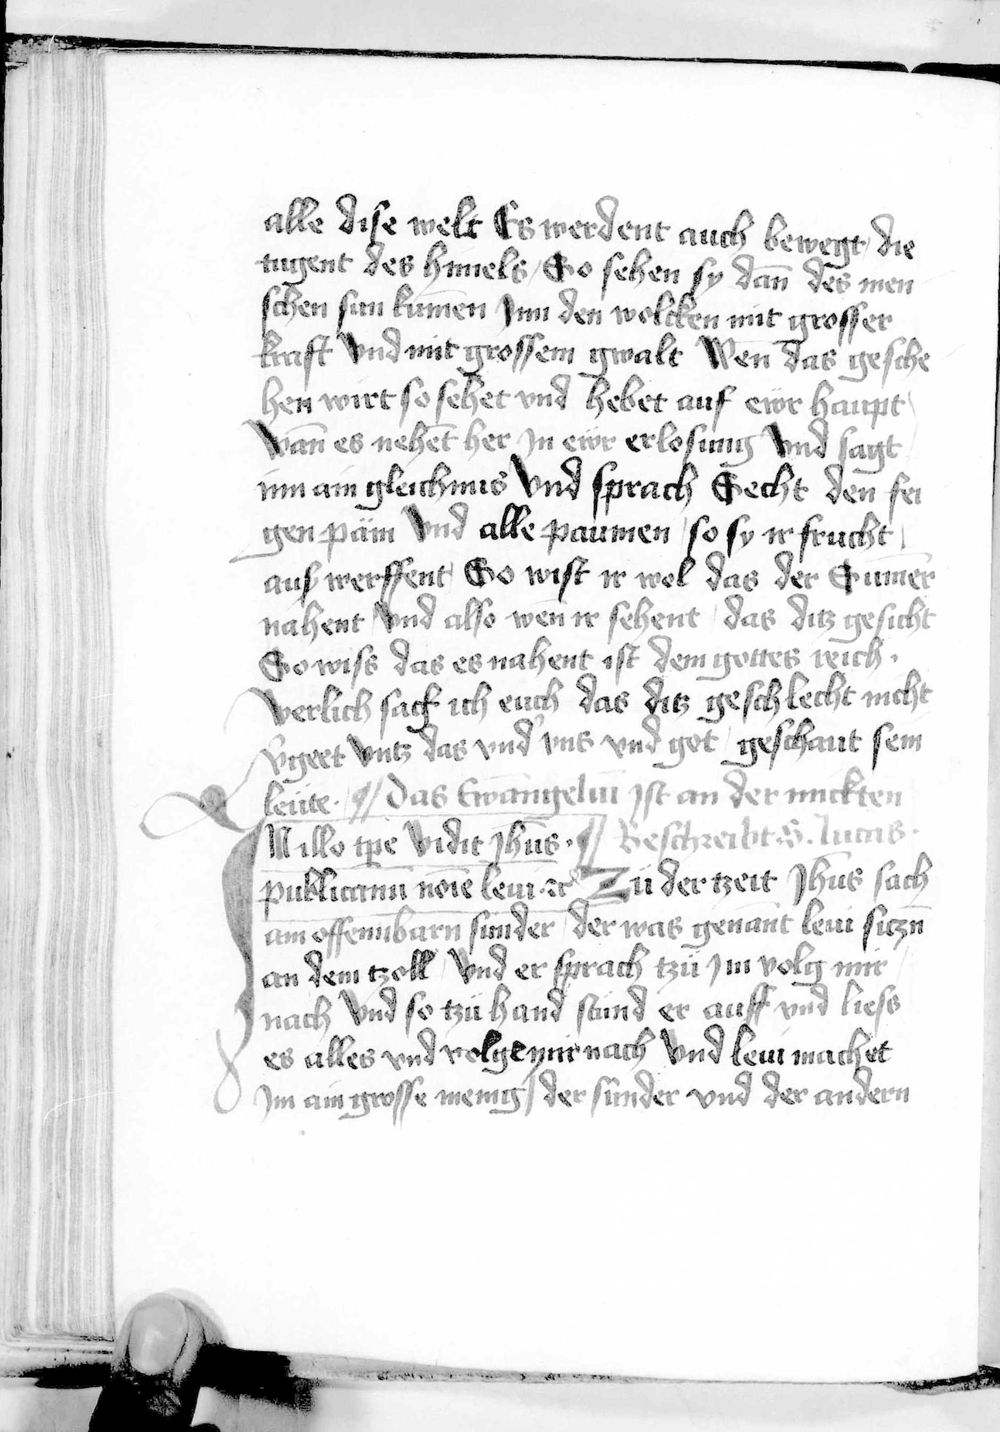 alle dise welt Es werdent auch bewegt / die
tugent des himels / So sehen sy dañ des men
schen sun kūmen Jnn den wolcken mit grosser
kraft Vnd mit grossem gwalt Weñ das gesche
hen wirt so sehet vnd hebet auf ewr haupt /
Wañ es nehet her Jn ewr erlosung Vnd sagt
inn ain gleichnus Vnd sprach Secht den fei
gen päm Vnd alle paumen / so sy ir frucht /
auß werffent / So wist ir wol das der Sumer
nahent / Vnd also wen ir sehent / das ditz gesicht
So wiss das es nahent ist dem gottes reich ·
Verlich sack ich euch das ditz geschlecht nicht
v̓geet vntz das vnd vns vnd got / geschaut sein
leüte · ¶ Das Ewangeliū Jst an der mickten
N illo tp̄e Vidit Jhūs · ¶ Beschreibt · S · lucas ·
publicanū noīe leui · ꝛc̄ Zü der tzeit Jhūs sach
ain offennbarn sünder / der was genant leui siczn̄
an dem tzoll / Vnd er sprach tzü Jm volg mir /
nach Vnd so tzü hand stünd er auff vnd liess
es alles vnd volge mir nach Vnd leui machet
Jm ain grosse menig / der sünder vnd der andern